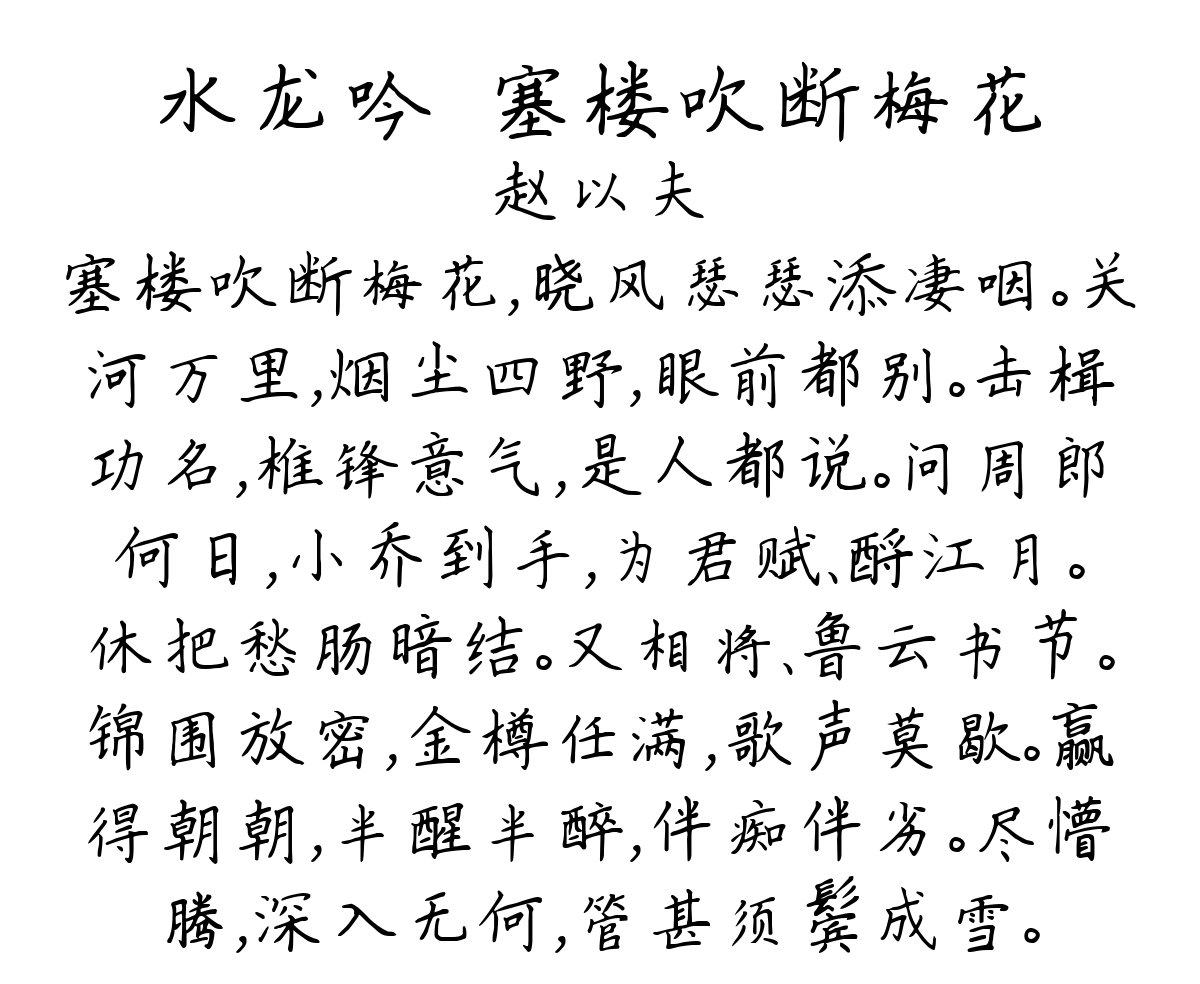 水龙吟 塞楼吹断梅花
赵以夫
塞楼吹断梅花,晓风瑟瑟添凄咽。关
河万里,烟尘四野,眼前都别。击楫
功名,椎锋意气,是人都说。问周郎
何日,小乔到手,为君赋、酹江月。
休把愁肠暗结。又相将、鲁云书节。
锦围放密,金樽任满,歌声莫歇。赢
得朝朝,半醒半醉,伴痴伴劣。尽懵
腾,深入无何,管甚须鬓成雪。